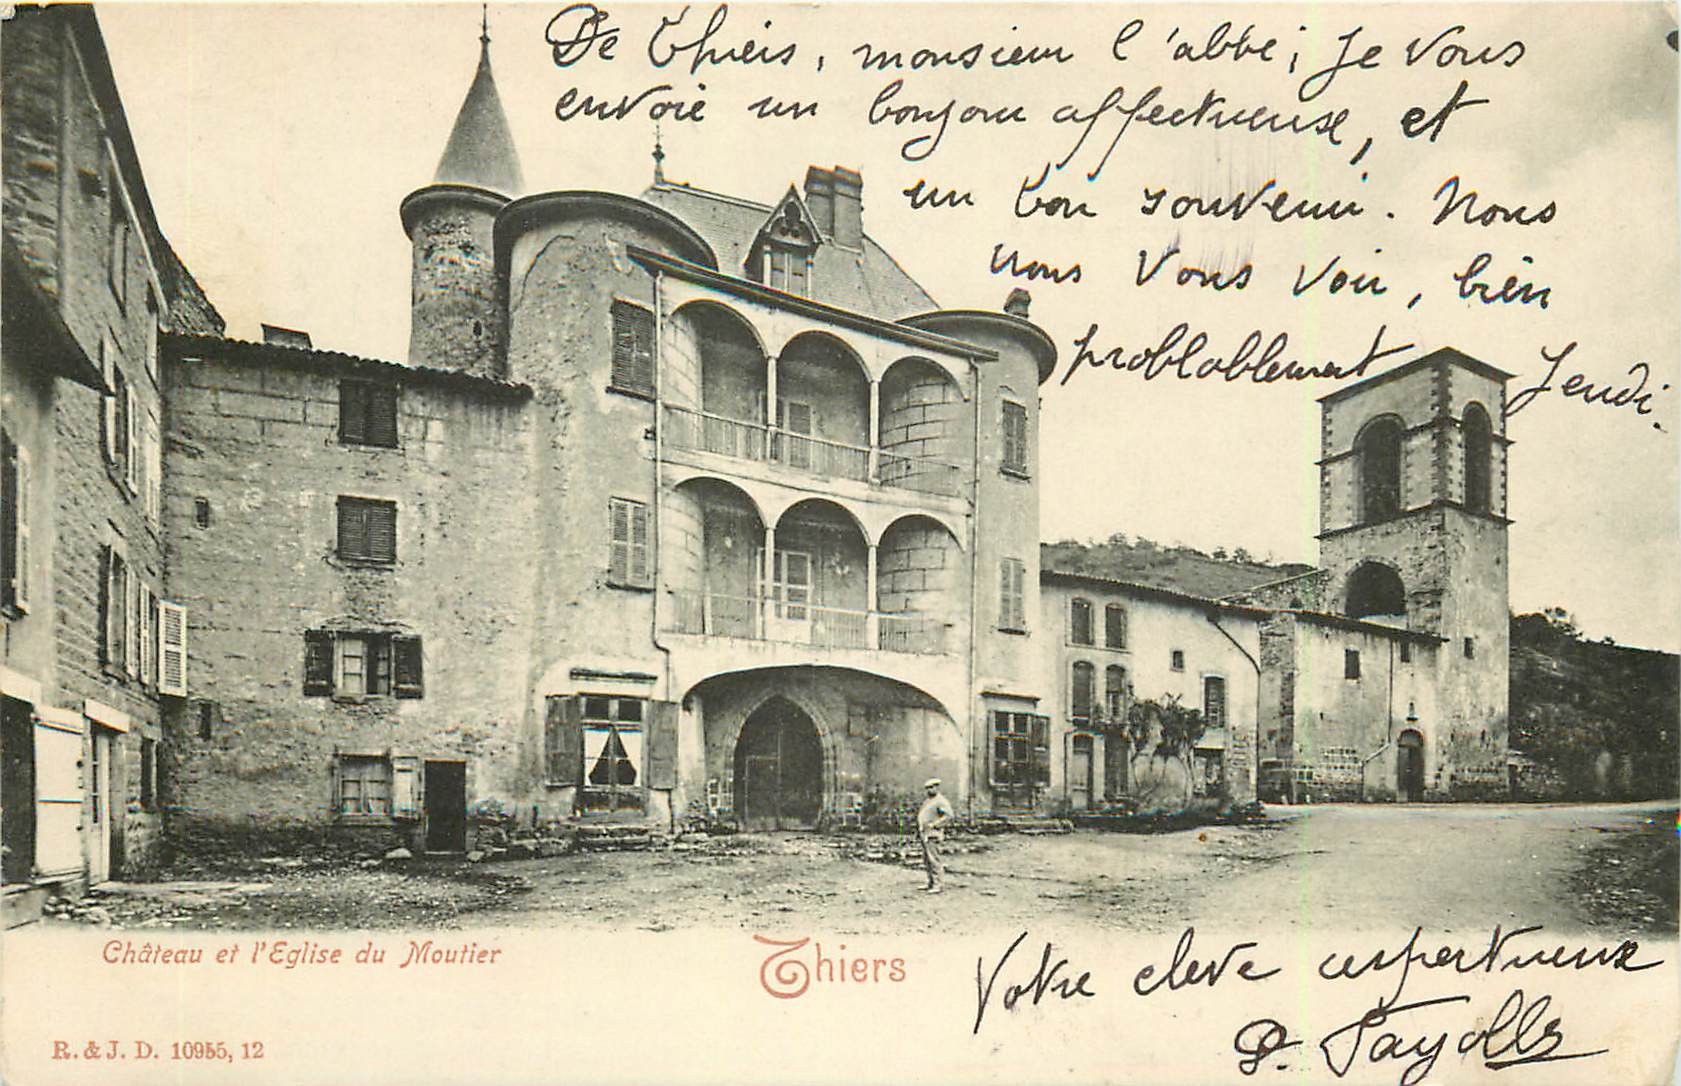 De Thiers, monsieur l'abbé, je vous
envoie un bonjour affectueuse, et
un bon souvenir. Nous
nous vous voir, bien
problablement Jeudi.
Château et l'Eglise du Moutier
Thiers
Votre eleve respectueux
P.
R. & J. D. 10955, 12